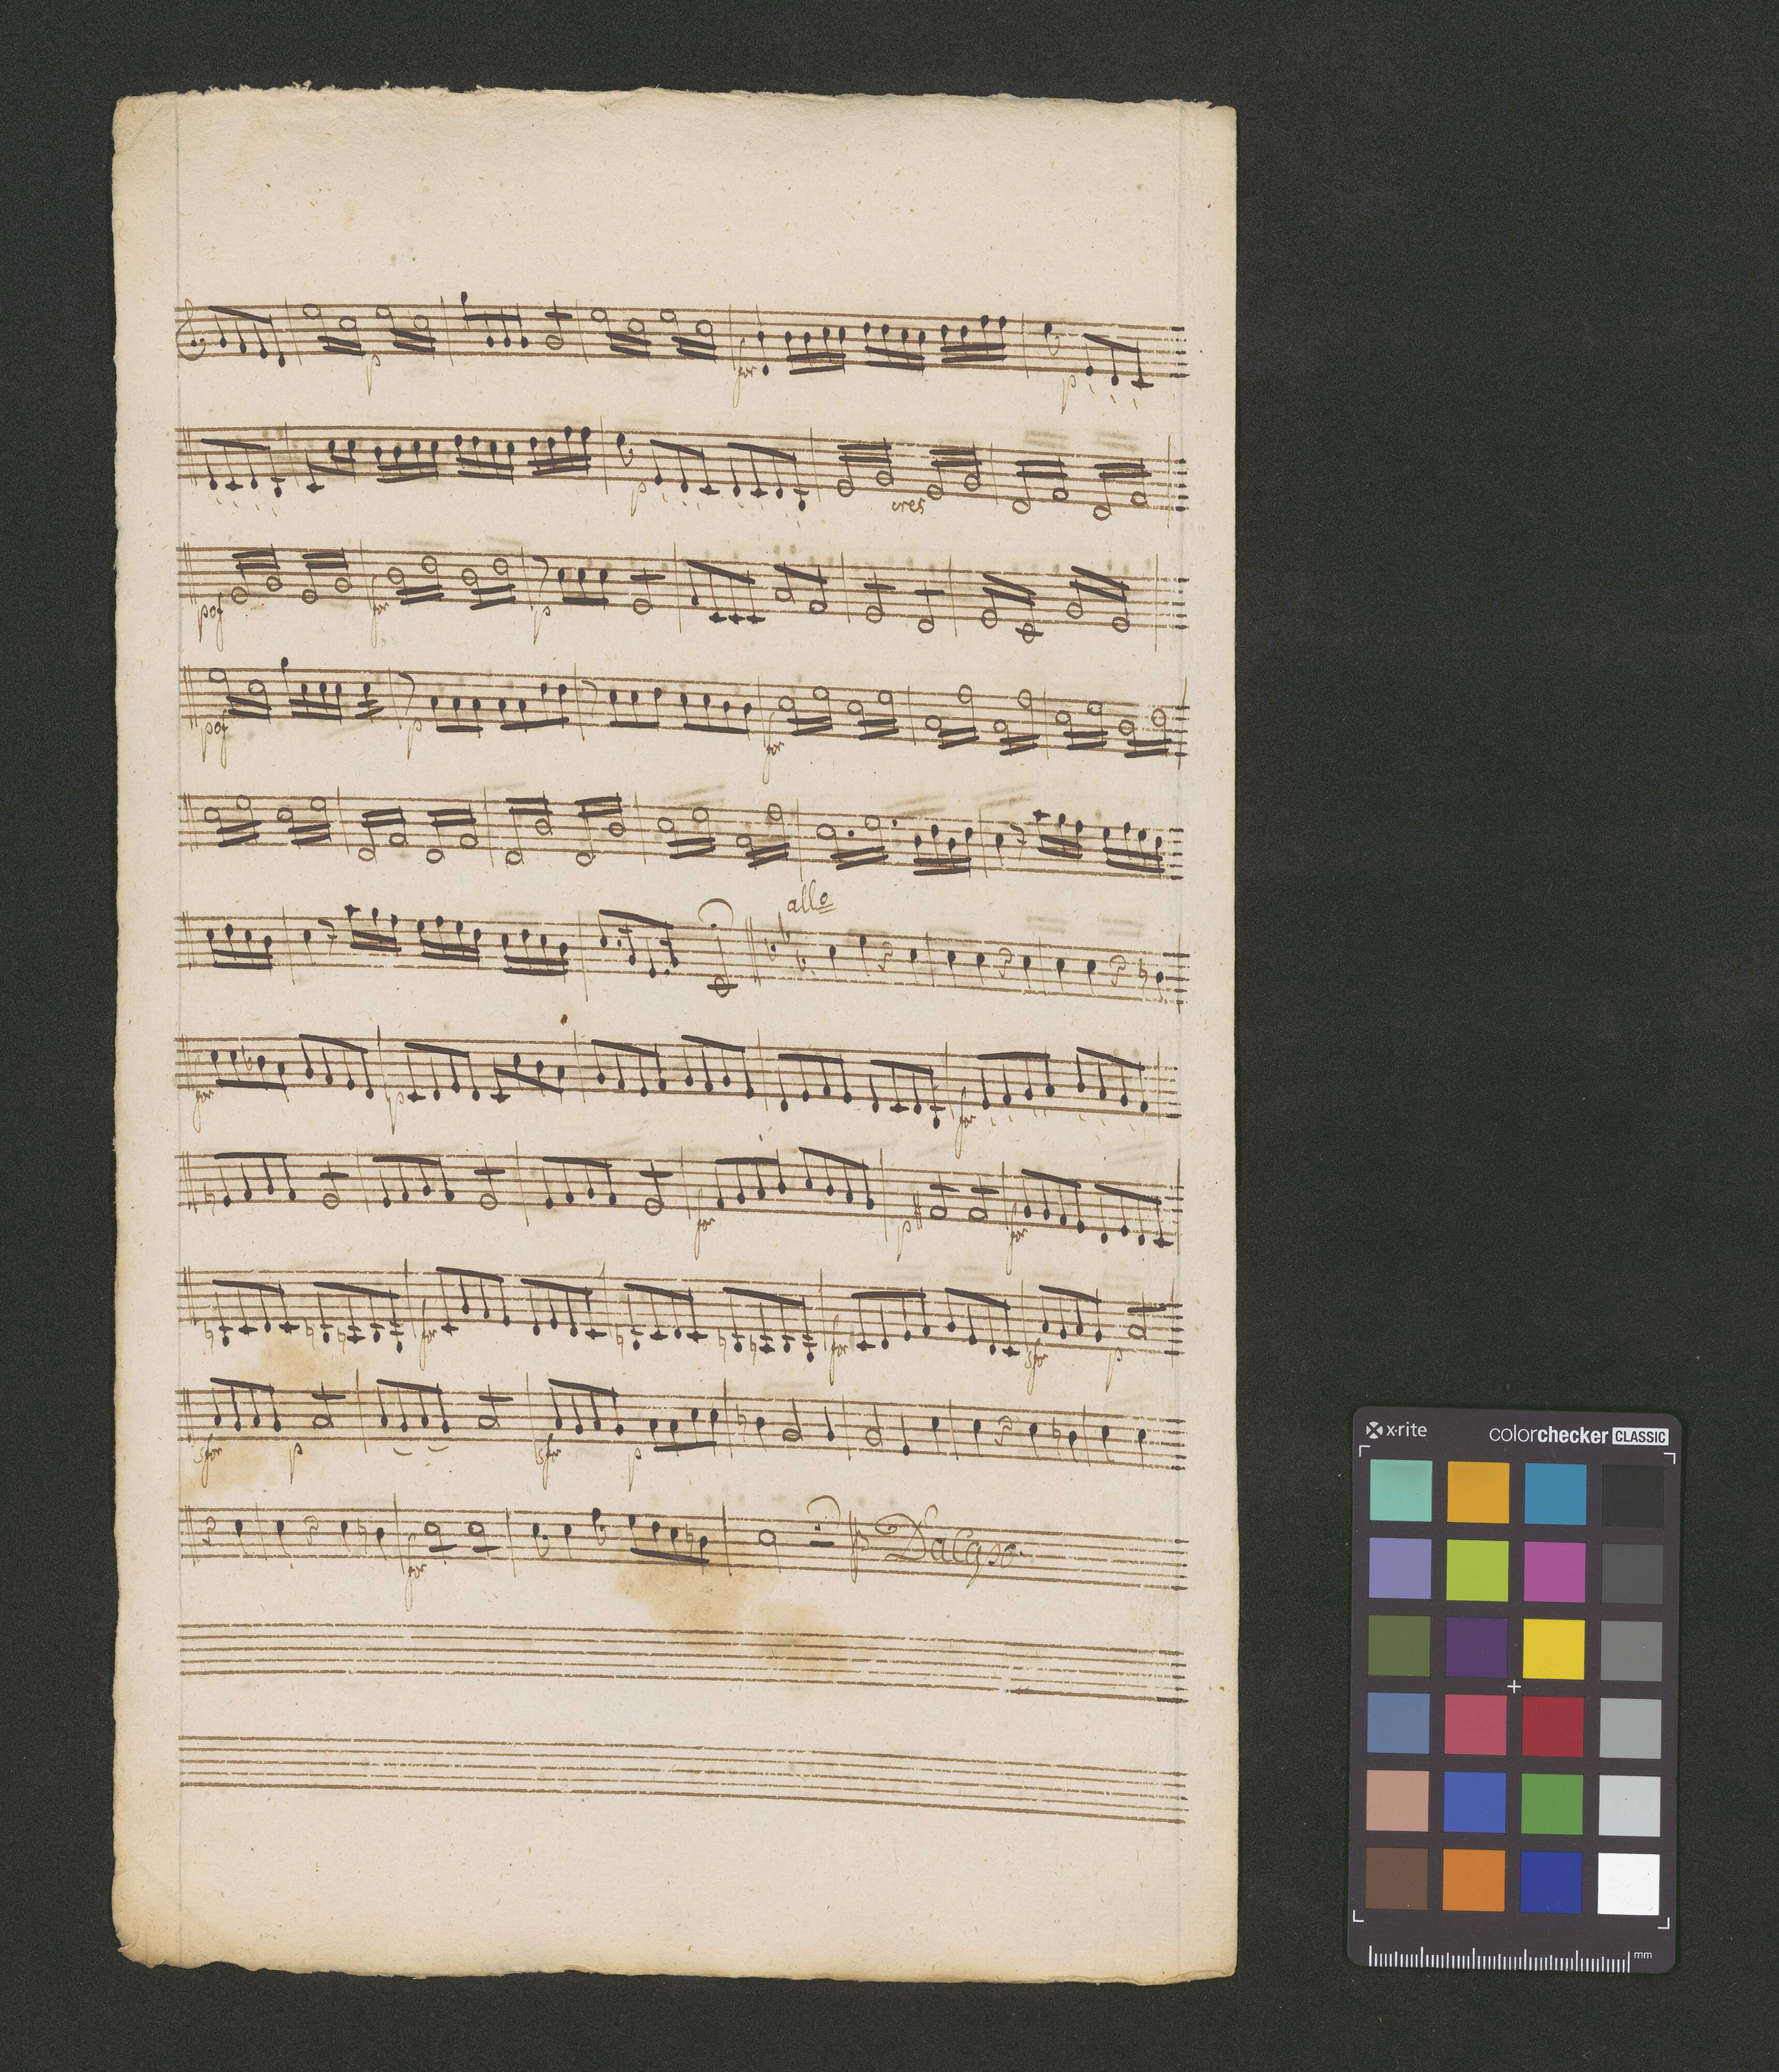 p for p
p cres
pof for p
pof p for
allo
for p for
for p for
for for sfor p
sfor p sfor p
for Dalsgno
x·rite colorchecker CLASSIC
mm